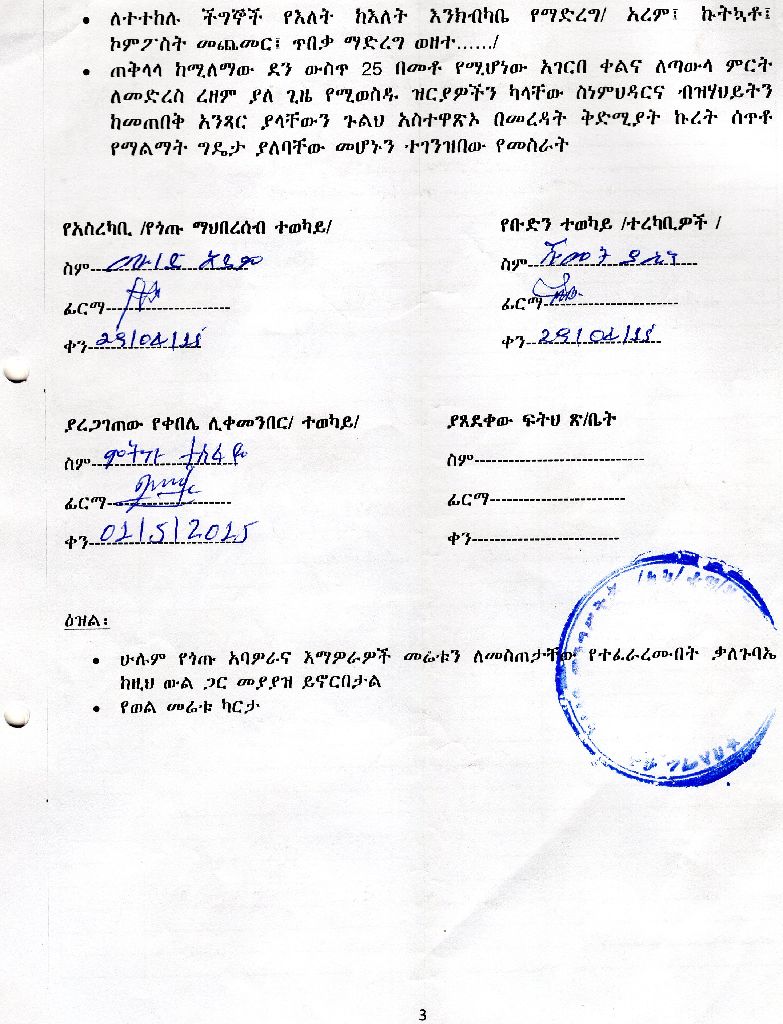 • ለተተከሉ ችግኞች የእለት ከእለት እንክብካቤ የማድረግ/ አረም፤ ኩትኳቶ፤
ኮምፖስት መጨመር፤ ጥበቃ ማድረግ ወዘተ……/
• ጠቅላላ ከሚለማው ደን ውስጥ 25 በመቶ የሚሆነው አገርበ ቀልና ለጣውላ ምርት
ለመድረስ ረዘም ያለ ጊዜ የሚወስዱ ዝርያዎችን ካላቸው ስነምህዳርና ብዝሃህይትን
ከመጠበቅ አንጻር ያላቸውን ጉልህ አስተዋጽኦ በመረዳት ቅድሚያት ኩረት ሰጥቶ
የማልማት ግዴታ ያለባቸው መሆኑን ተገንዝበው የመስራት
የአስረካቢ /የጎጡ ማህበረሰብ ተወካይ/
ስም
ፊርማ
ቀን 29/04/15
የቡድን ተወካይ /ተረካቢዎች /
ስም
ፊርማ
ቀን 29/04/15
ያረጋገጠው የቀበሌ ሊቀመንበር/ ተወካይ/
ስም
ፊርማ
ቀን 01/5/2015
ያጸደቀው ፍትህ ጽ/ቤት
ስም
ፊርማ
ቀን
ዕዝል፡
• ሁሉም የጎጡ አባዎራና እማዎራዎች መሬቱን ለመስጠታቸው የተፈራረሙበት ቃለጉባኤ
ከዚህ ውል ጋር መያያዝ ይኖርበታል
• የወል መሬቱ ካርታ
3